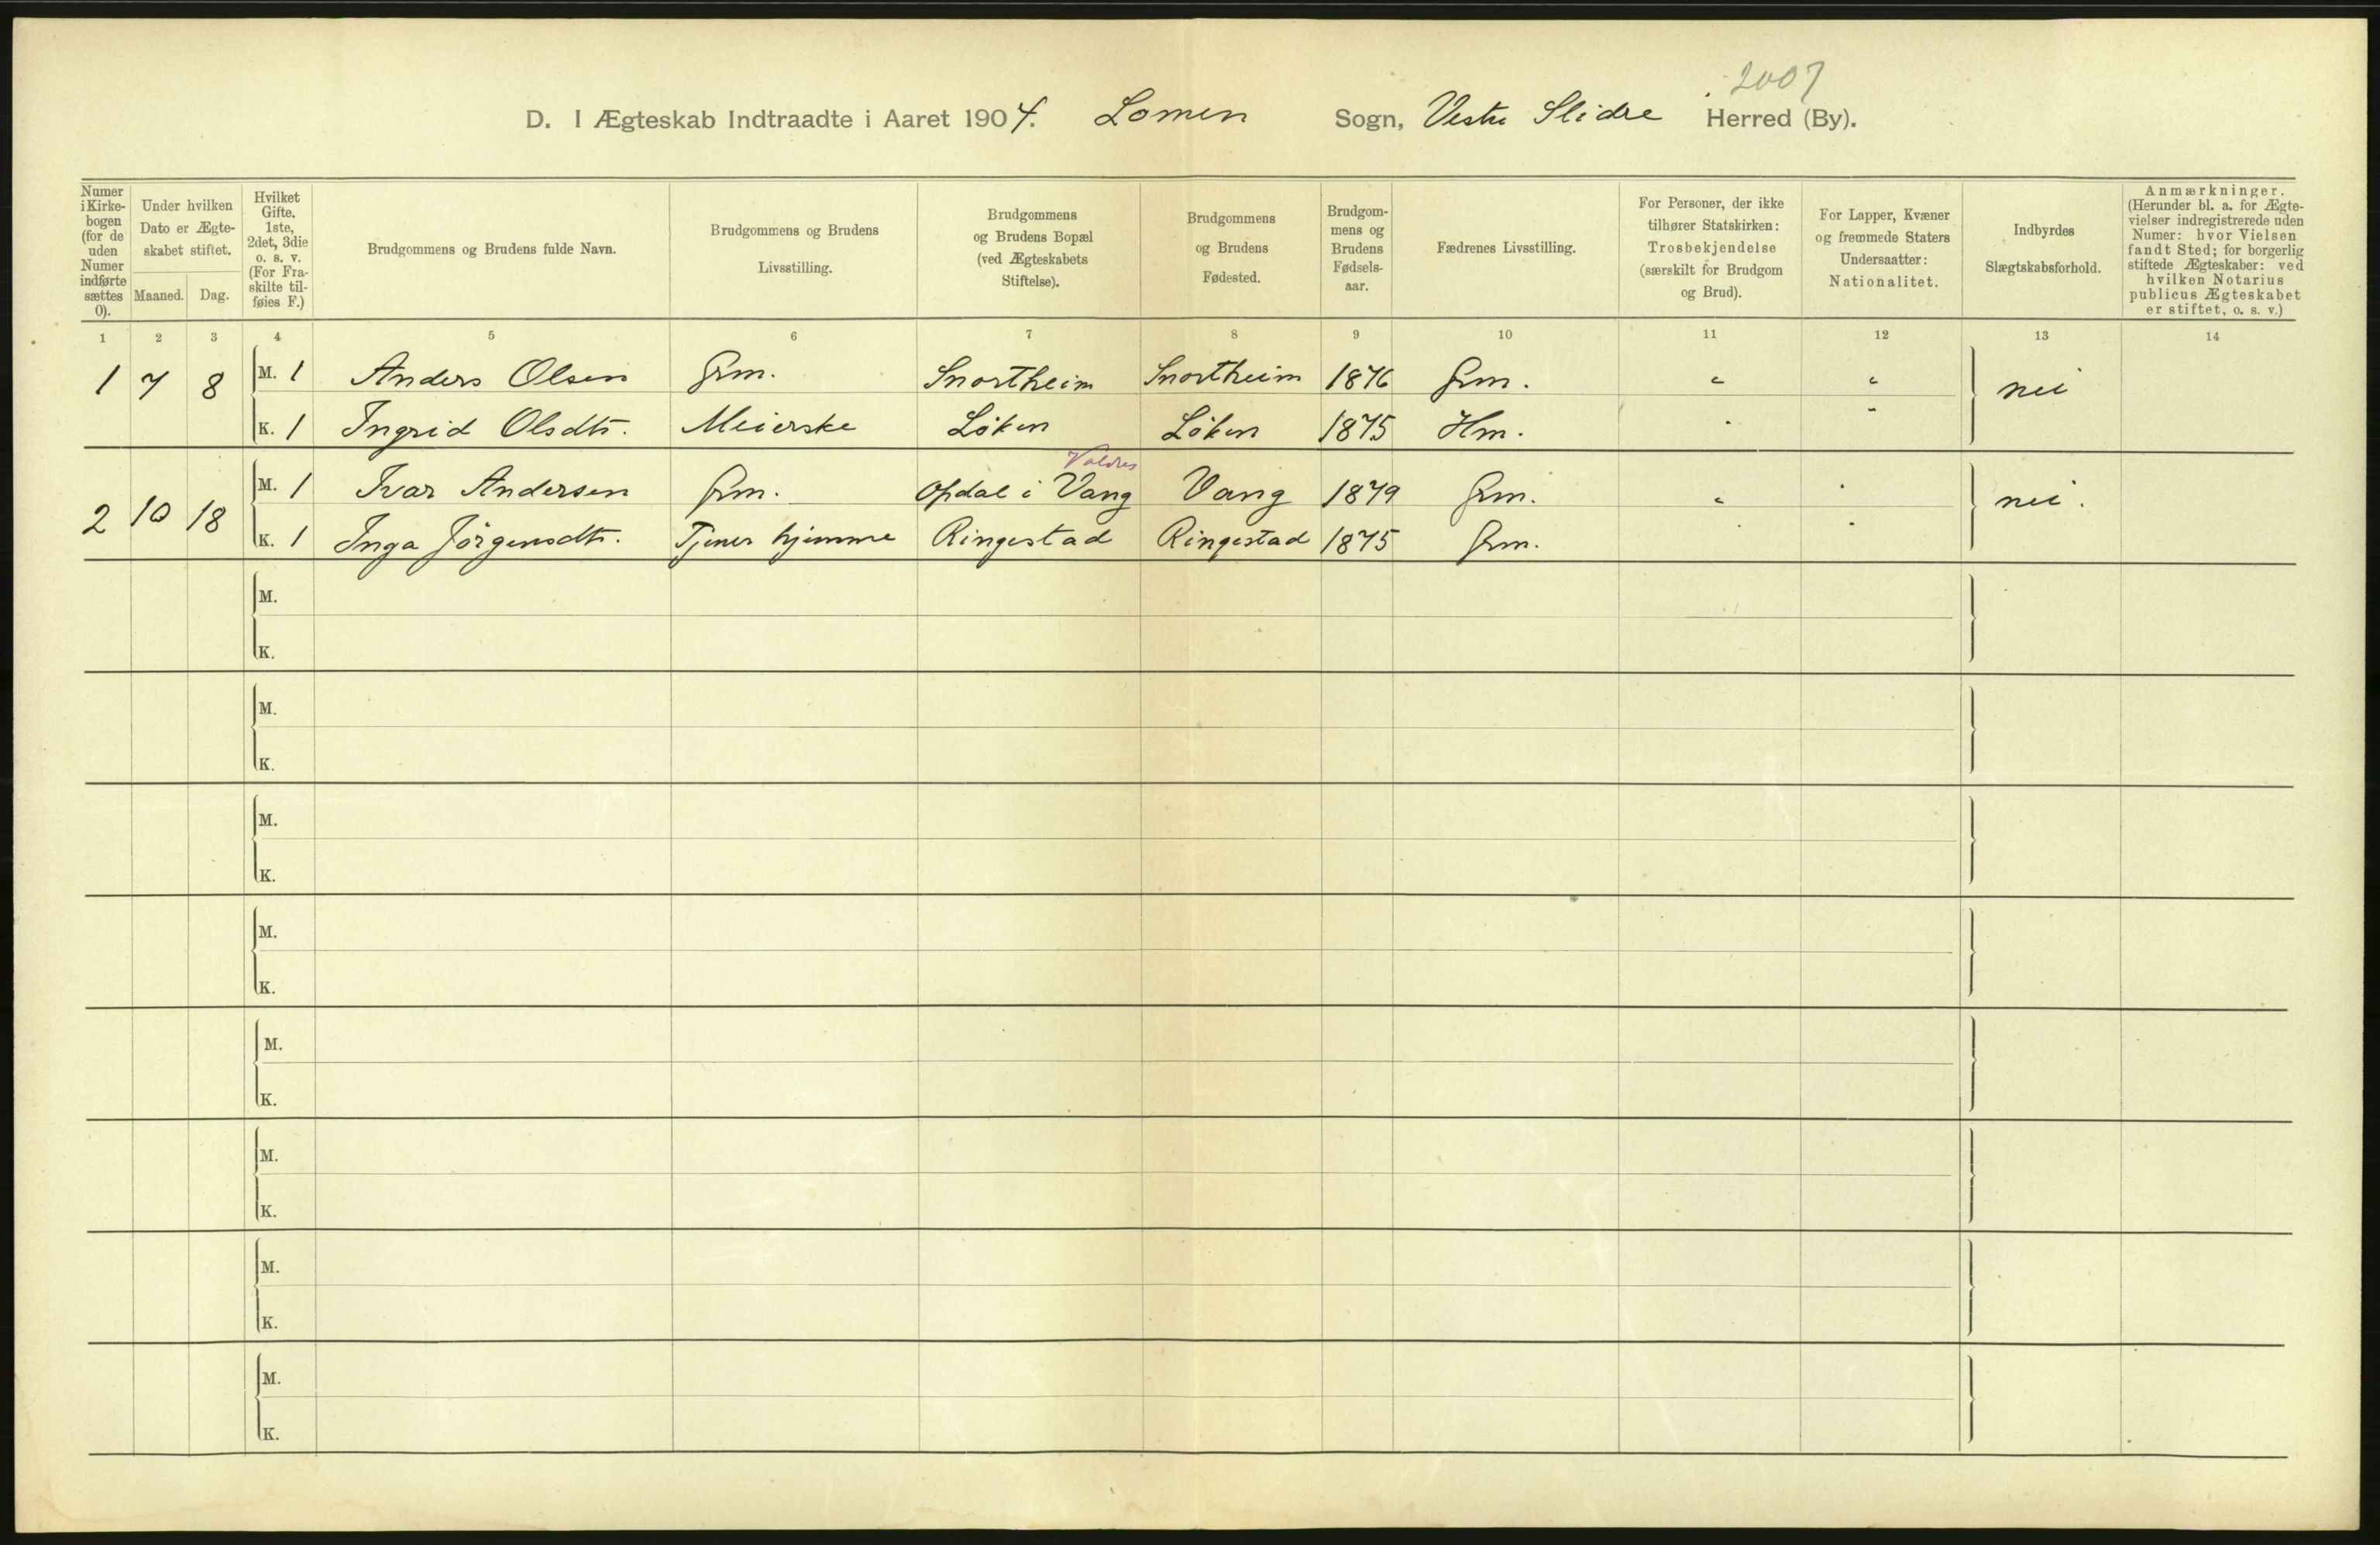 2007
D. I Ægteskab Indtraadte i Aaret 1904. Lomen Sogn, Vestre Slidre Herred (By).
Numer i Kirkebogen (for de uden Numer indførte sættes 0).
Under hvilken Dato er Ægteskabet stiftet.
Maaned. Dag.
Hvilket Gifte. 1ste, 2det, 3die o. s. v. (For Fraskilte tilføies F.)
Brudgommens og Brudens fulde Navn.
Brudgommens og Brudens Livsstilling.
Brudgommens og Brudens Bopæl (ved Ægteskabets Stiftelse).
Brudgommens og Brudens Fødested.
Brudgommens og Brudens Fødselsaar.
Fædrenes Livsstilling.
For Personer, der ikke tilhører Statskirken: Trosbekjendelse (særskilt for Brudgom og Brud).
For Lapper, Kvæner og fremmede Staters Undersaatter: Nationalitet.
Indbyrdes Slægtskabsforhold.
Anmærkninger. (Herunder bl. a. for Ægtevielser indregistrerede uden Numer: hvor Vielsen fandt Sted; for borgerlig stiftede Ægteskaber: ved hvilken Notarius publicus Ægteskabet er stiftet, o. s. v.)
1 2 3 4 5 6 7 8 9 10 11 12 13 14
1 7 8 M. 1 Anders Olsen Grm. Snortheim Snortheim 1876 Grm. " " nei
K. 1 Ingrid Olsdtr. Meierske Löken Löken 1875 Hm. " "
Valdres
2 10 18 M. 1 Ivar Andersen Grm. Opdal i Vang Vang 1879 Grm. " " nei.
K. 1 Inga Jörgensdtr. Tjener hjemme Ringestad Ringestad 1875 Grm. " "
M.
K.
M.
K.
M.
K.
M.
K.
M.
K.
M.
K.
M.
K.
M.
K.